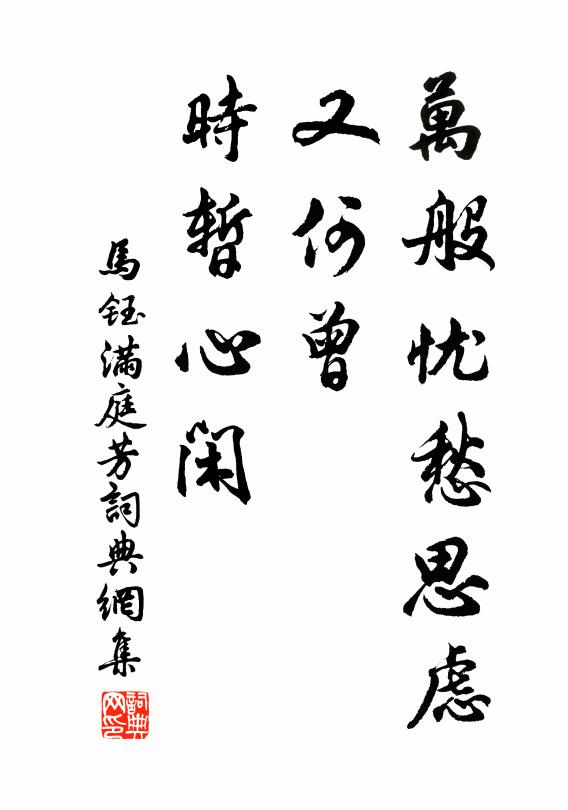 萬般忧愁思慮
又何曾
時暫心閑
馬鈺滿庭芳詞典網集
詞典网印